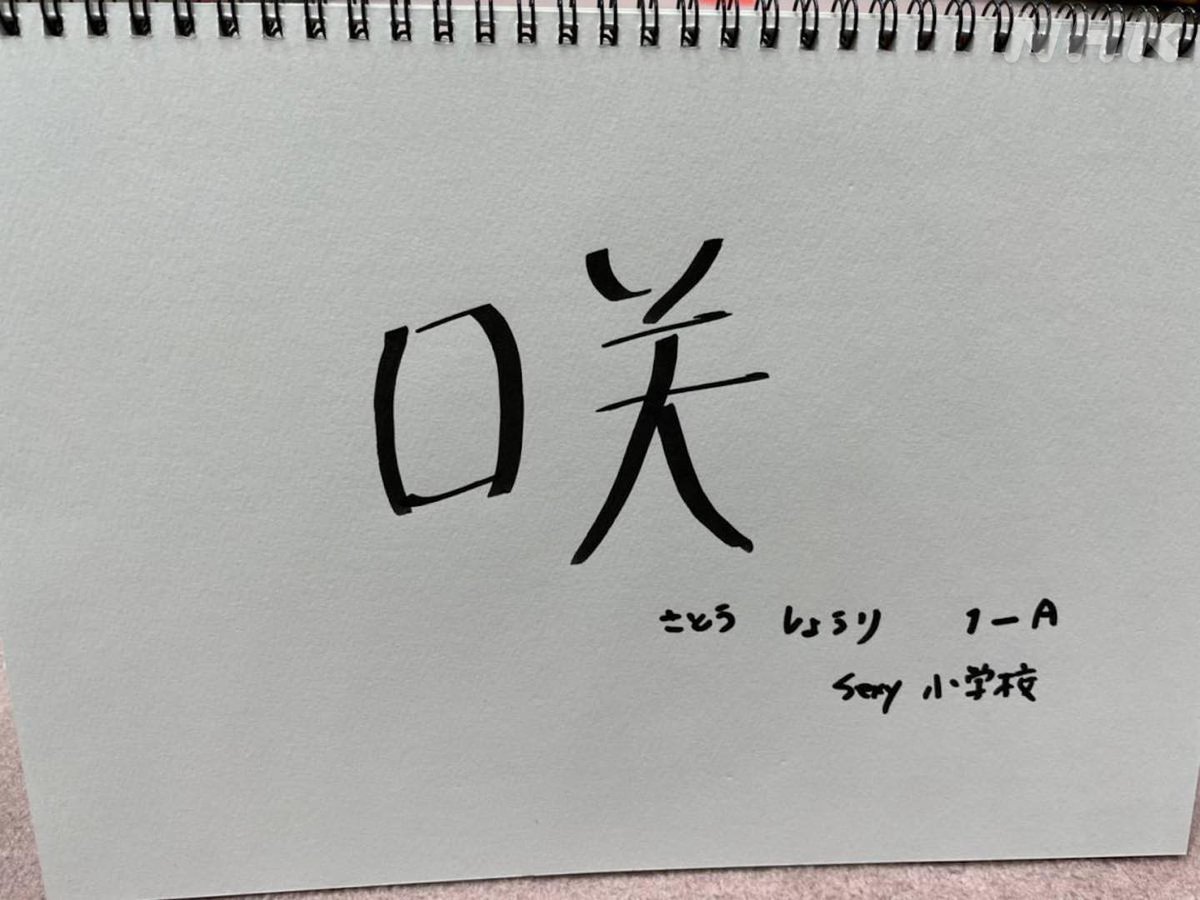 NHK
咲
さとう しょうり 1-A
Sexy 小学校